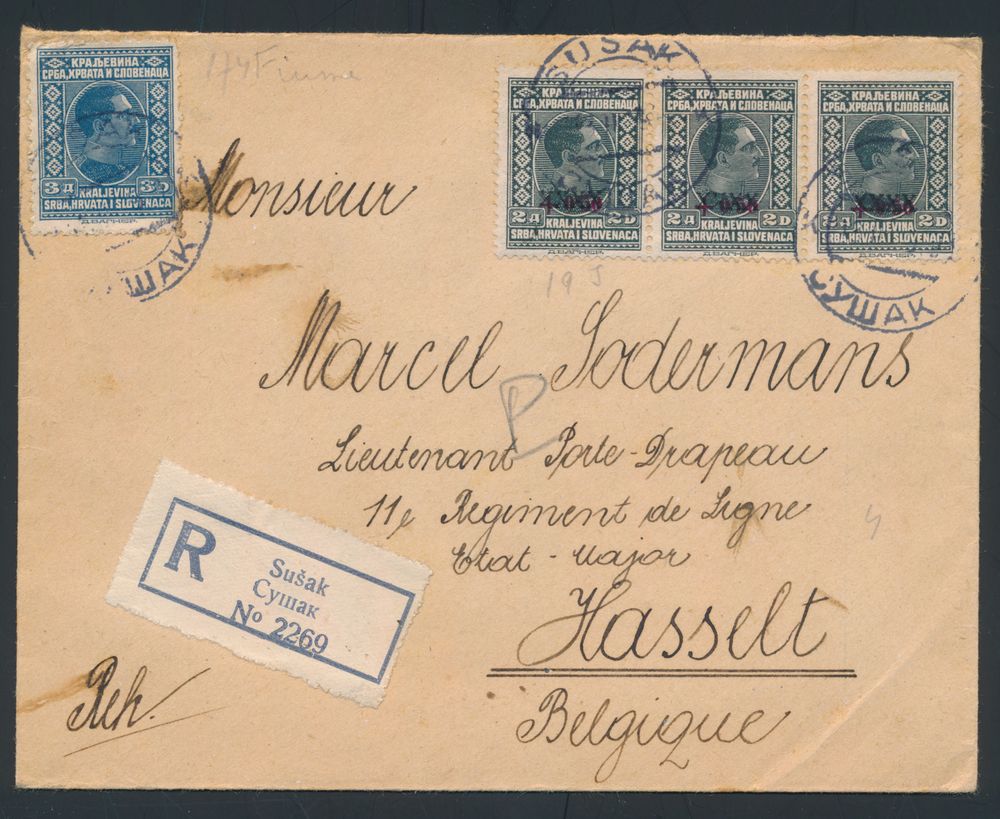 174 Fiume
КРАЉЕВИНА
СРБА, ХРВАТА И СЛОВЕНАЦА
3Д 3D
KRALJEVINA
SRBA, HRVATA I SLOVENACA
Д. ВАГНЕР.
ШАК
SUŠAK
КРАЉЕВИНА
СРБА, ХРВАТА И СЛОВЕНАЦА
2Д 2D
KRALJEVINA
SRBA, HRVATA I SLOVENACA
Д. ВАГНЕР.
КРАЉЕВИНА
СРБА, ХРВАТА И СЛОВЕНАЦА
2Д 2D
KRALJEVINA
SRBA, HRVATA I SLOVENACA
Д. ВАГНЕР.
КРАЉЕВИНА
СРБА, ХРВАТА И СЛОВЕНАЦА
2Д 2D
KRALJEVINA
SRBA, HRVATA I SLOVENACA
Д. ВАГНЕР.
СУШАК
Monsieur
19
Marcel Sodermans
P
Lieutenant Porte-Drapeau
11e Regiment de Ligne
Etat-Major
Hasselt
Belgique
R
Sušak
Сушак
No 2269